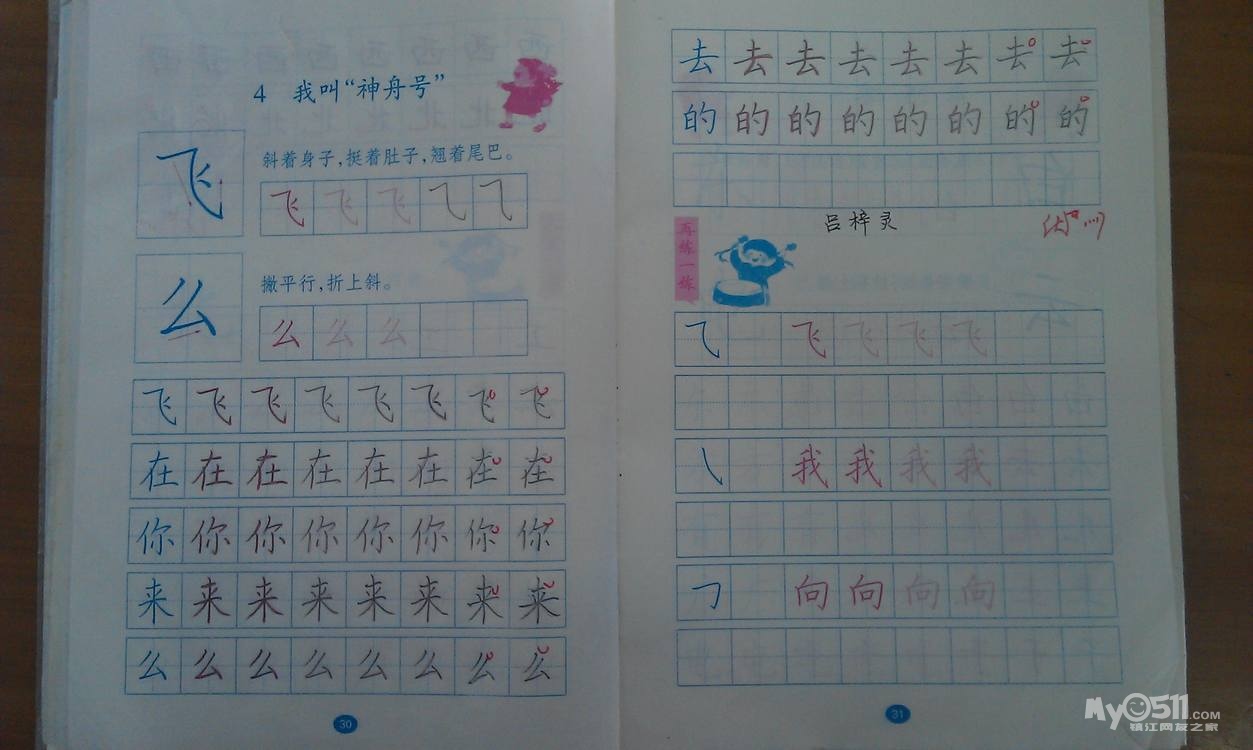 4 我叫“神舟号”
飞
斜着身子，挺着肚子，翘着尾巴。
飞 飞 飞 ⺄ ⺄
么
撇平行，折上斜。
么 么 么
飞 飞 飞 飞 飞 飞 飞 飞
在 在 在 在 在 在 在 在
你 你 你 你 你 你 你 你
来 来 来 来 来 来 来 来
么 么 么 么 么 么 么 么
30
去 去 去 去 去 去 去 去
的 的 的 的 的 的 的 的
吕梓灵
再练一练
⺄ 飞 飞 飞 飞
㇏ 我 我 我 我
㇆ 向 向 向 向
31
My0511.COM
镇江网友之家